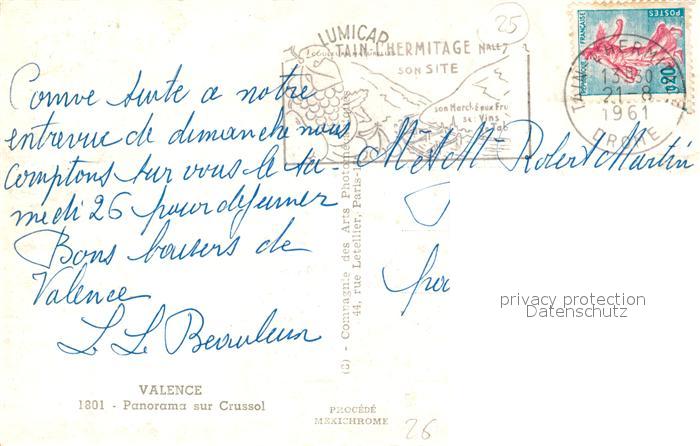 25
LUMICAP
TAIN L'HERMITAGE
NALE 7
SON SITE
son Marché aux Fru
ses Vins
TAIN L'HERMITAGE
13H30
21-8
1961
DROME
REPUBLIQUE FRANÇAISE
POSTES
0,20
Comme suite a notre
entrevue de dimanche nous
comptons sur vous le sa-
medi 26 pour déjeuner
Bons baisers de
Valence
L L Beauleux
Mr et Mme Robert Martin
pa
privacy protection
Datenschutz
(C) - Compagnie des Arts Photomécaniques
44, rue Letellier, Paris-1
VALENCE
1801 - Panorama sur Crussol
PROCÉDÉ
MEXICHROME
26